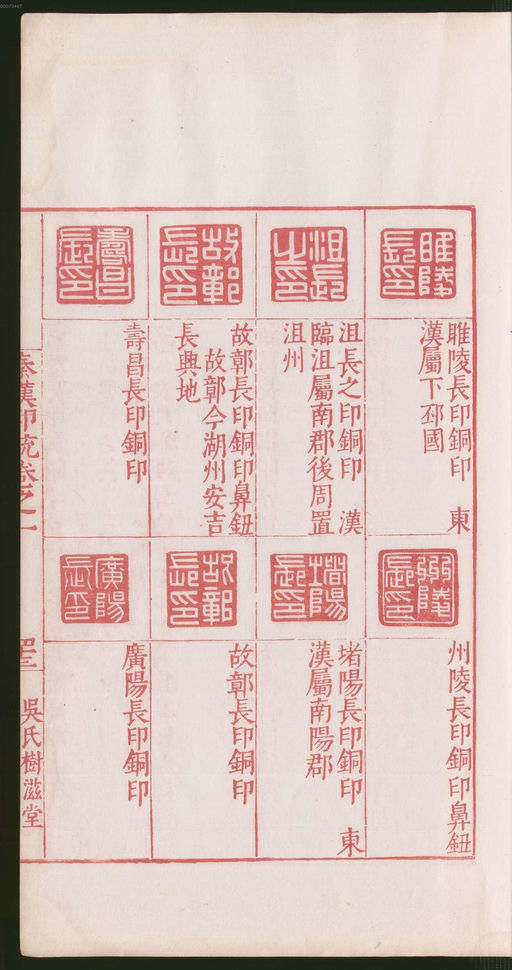 睢陵長印
睢陵長印銅印　東
漢屬下邳國
沮長之印
沮長之印銅印　漢
臨沮屬南郡後周置
沮州
故鄣長印
故鄣長印銅印鼻鈕
故鄣今湖州安吉
長興地
壽昌長印
壽昌長印銅印
州陵長印銅印鼻鈕
堵陽長印
堵陽長印銅印　東
漢屬南陽郡
故鄣長印
故鄣長印銅印
廣陽長印
廣陽長印銅印
秦漢印統卷之一
吳氏樹滋堂
00079467